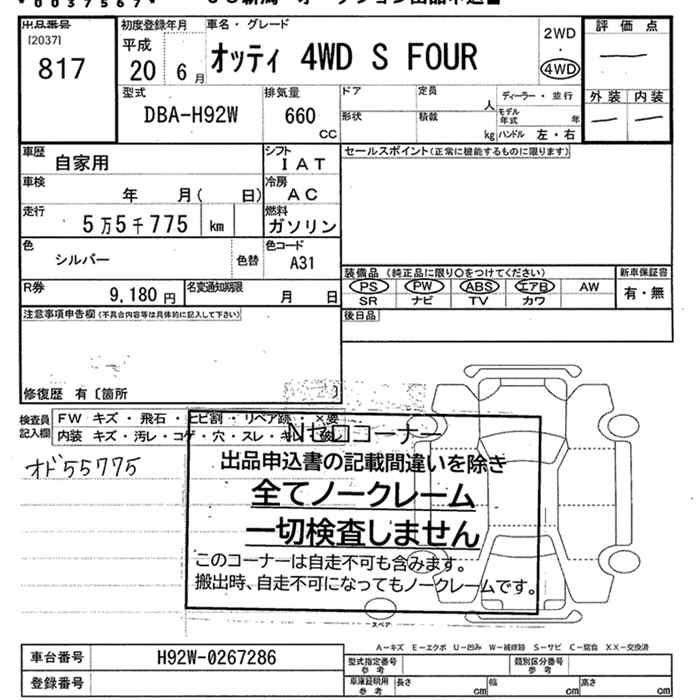 *0037567*
出品番号
[2037]
817
初度登録年月
平成
20 6月
車名・グレード
オッティ 4WD S FOUR
2WD
・
4WD
評価点
―
外装 内装
― ―
型式
DBA-H92W
排気量
660
CC
ドア
定員
人
形状
積載
kg
ディーラー・並行
モデル年式 年
ハンドル 左・右
車歴
自家用
シフト
IAT
車検
年 月( 日)
冷房
AC
走行
5万5千775 km
燃料
ガソリン
色
シルバー
色替
色コード
A31
R券
9,180円
名変通知期限
月 日
セールスポイント(正常に機能するものに限ります)
装備品(純正品に限り○をつけてください)
PS PW ABS エアB AW
SR ナビ TV カワ
新車保証書
有・無
後日品
注意事項申告欄(不具合内容等は具体的に記入して下さい)
修復歴 有〔箇所
検査員記入欄
FW キズ・飛石・ヒビ割・リペア跡・×要
内装 キズ・汚レ・コゲ・穴・スレ・
オド55775
Nゼロコーナー
出品申込書の記載間違いを除き
全てノークレーム
一切検査しません
このコーナーは自走不可も含みます。
搬出時、自走不可になってもノークレームです。
スペア
A-キズ E-エクボ U-凹み W-補修跡 S-サビ C-腐食 XX-交換済
車台番号
H92W-0267286
登録番号
型式指定番号
参考
類別区分番号
参考
車庫証明用
参考
長さ cm 幅 cm 高さ cm